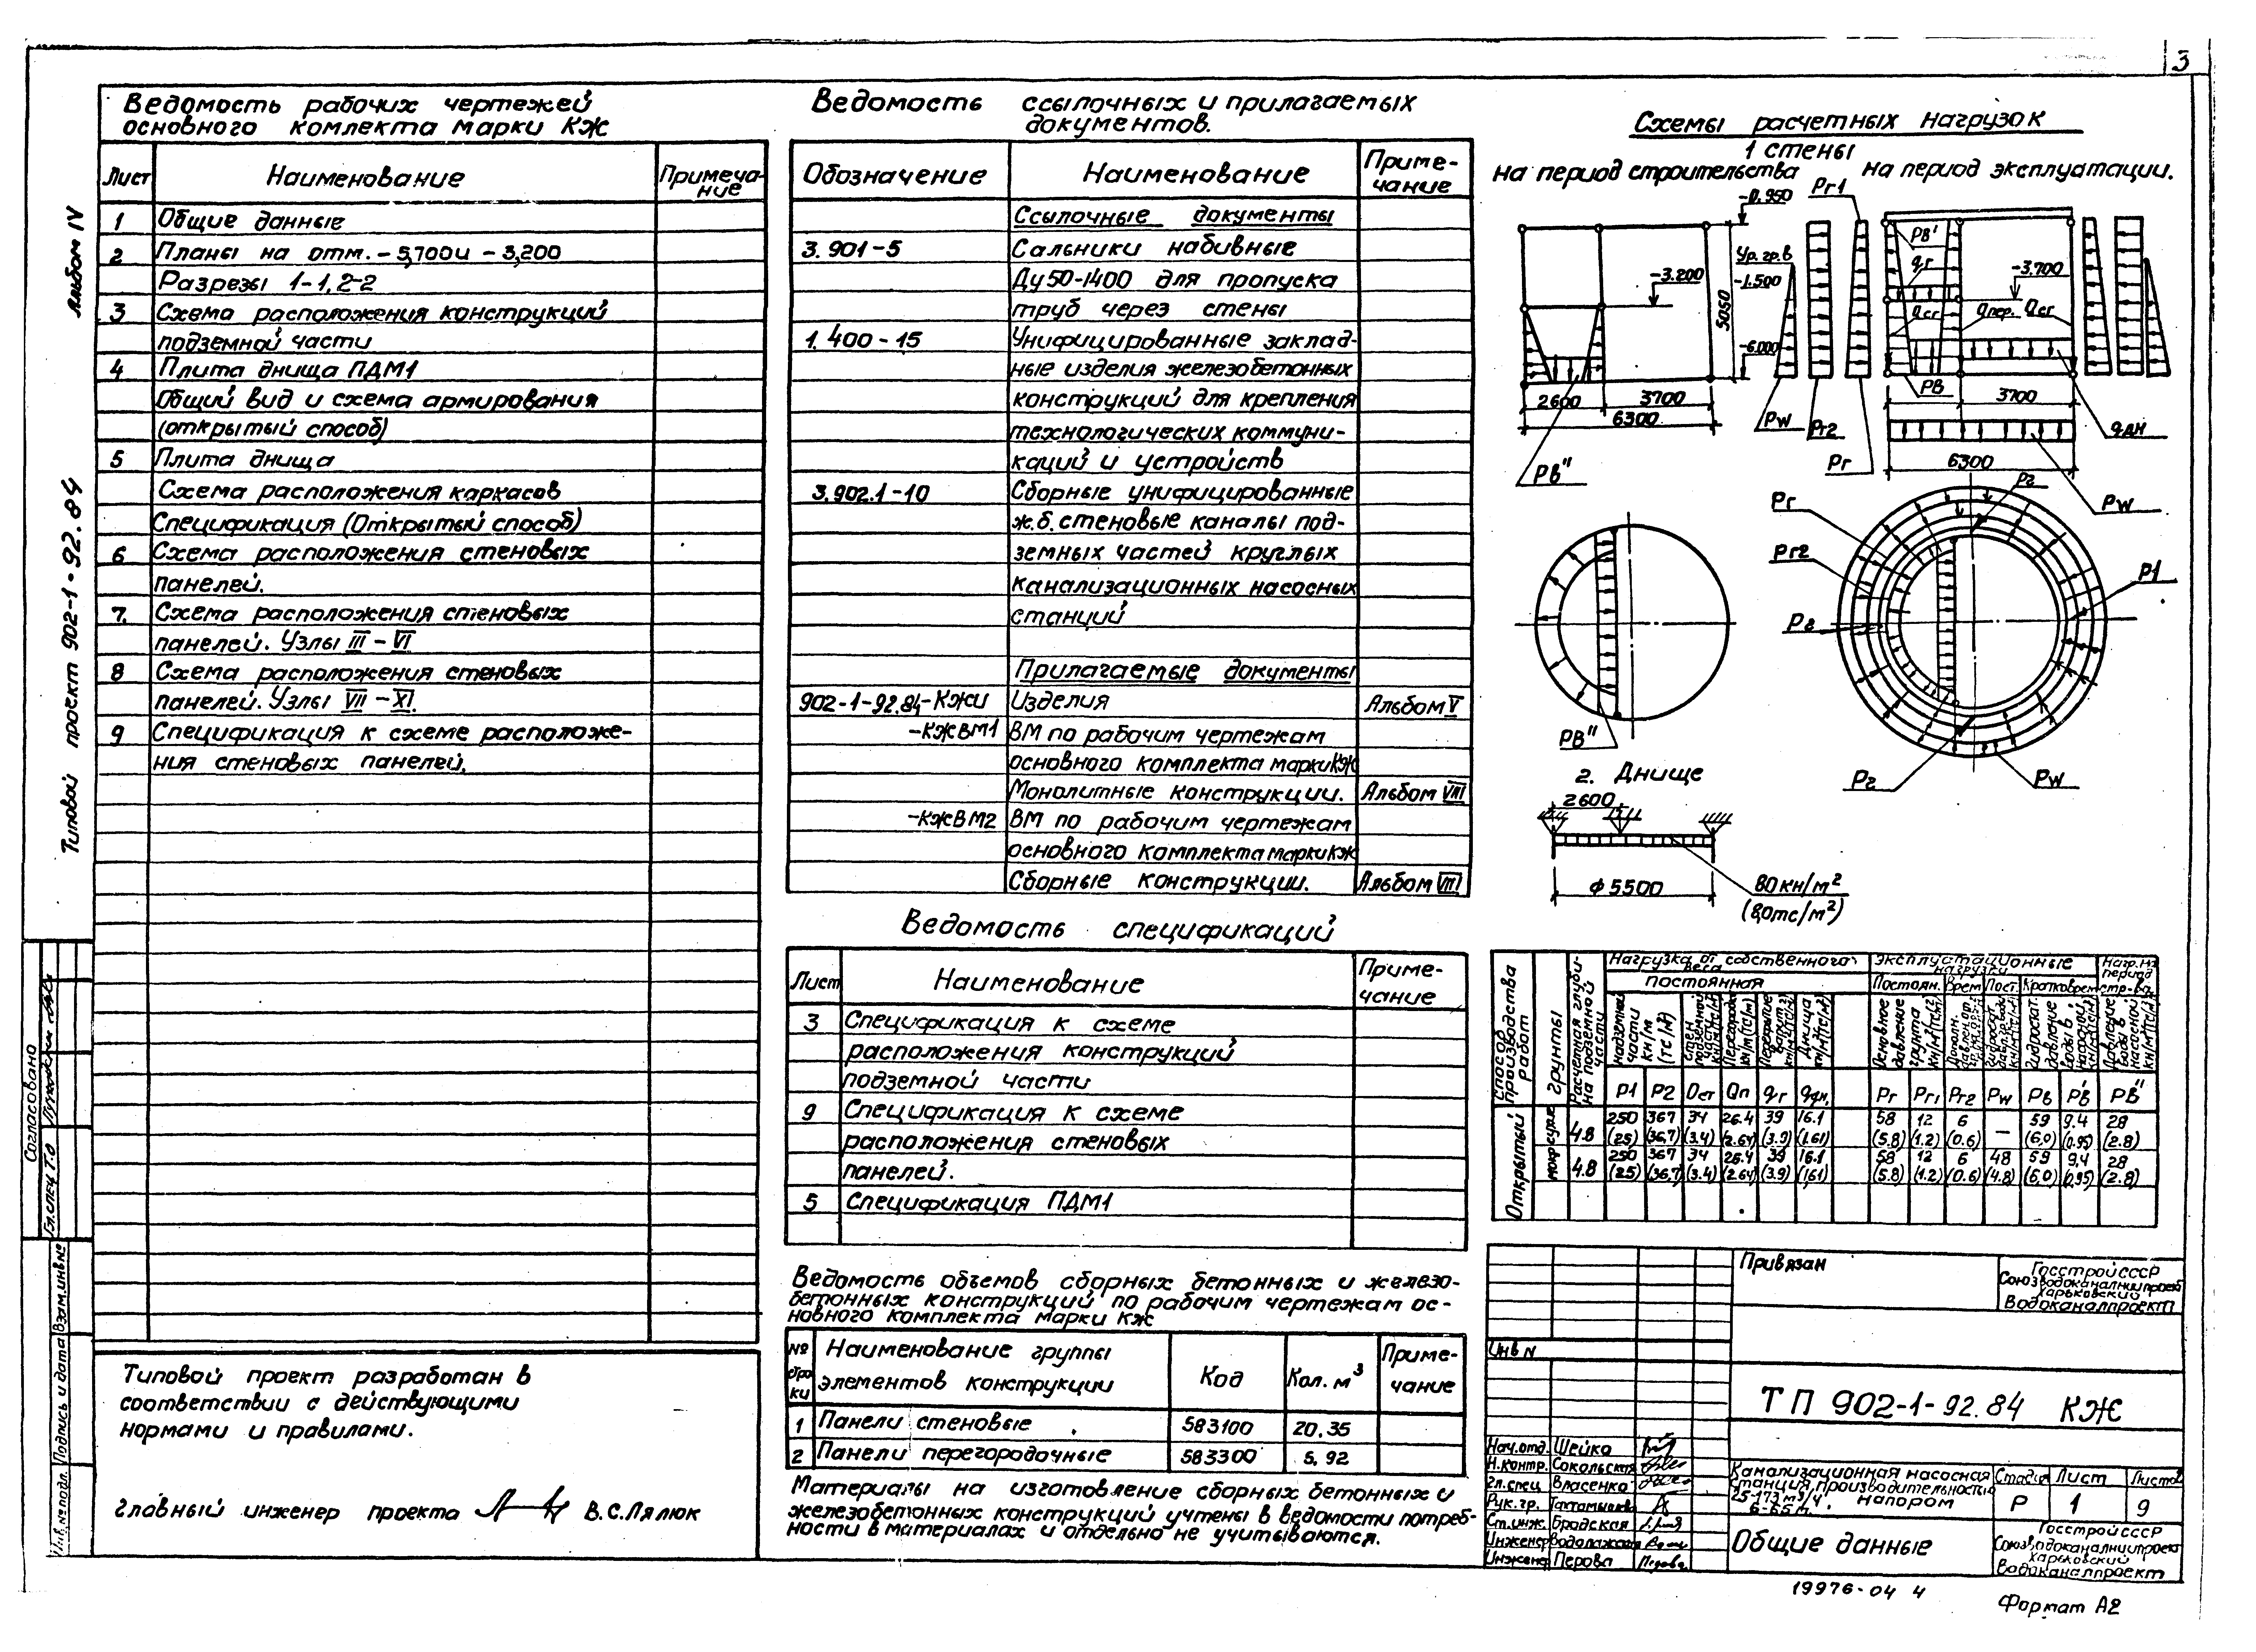 3
Альбом IV
Типовой проект 902-1-92.84
Ведомость рабочих чертежей
основного комлекта марки КЖ
Лист
Наименование
Примеча-
ние
1 Общие данные
2 Планы на отм. -5,700 и -3,200
Разрезы 1-1, 2-2
3 Схема расположения конструкций
подземной части
4 Плита днища ПДМ1
Общий вид и схема армирования
(открытый способ)
5 Плита днища
Схема расположения каркасов
Спецификация (Открытый способ)
6 Схема расположения стеновых
панелей.
7. Схема расположения стеновых
панелей. Узлы III - VI
8 Схема расположения стеновых
панелей. Узлы VII - XI.
9 Спецификация к схеме расположе-
ния стеновых панелей.
Типовой проект разработан в
соответствии с действующими
нормами и правилами.
главный инженер проекта В.С.Лялюк
Согласовано
Гл.спец Т.О
Взам.инв№
Подпись и дата
Инв.№подл.
Ведомость ссылочных и прилагаемых
документов.
Обозначение
Наименование
Приме-
чание
Ссылочные документы
3.901-5 Сальники набивные
Ду50-1400 для пропуска
труб через стены
1.400-15 Унифицированные заклад-
ные изделия железобетонных
конструкций для крепления
технологических коммуни-
каций и устройств
3.902.1-10 Сборные унифицированные
ж.б. стеновые каналы под-
земных частей круглых
канализационных насосных
станций
Прилагаемые документы
902-1-92.84-КЖИ Изделия Альбом V
-КЖВМ1 ВМ по рабочим чертежам
основного комплекта марки КЖ
Монолитные конструкции. Альбом VIII
-КЖВМ2 ВМ по рабочим чертежам
основного комплекта марки КЖ
Сборные конструкции. Альбом VIII
Ведомость спецификаций
Лист
Наименование
Приме-
чание
3 Спецификация к схеме
расположения конструкций
подземной части
9 Спецификация к схеме
расположения стеновых
панелей.
5 Спецификация ПДМ1
Ведомость объемов сборных бетонных и железо-
бетонных конструкций по рабочим чертежам ос-
новного комплекта марки КЖ
№ стро ки
Наименование группы
элементов конструкции
Код
Кол. м³
Приме-
чание
1 Панели стеновые 583100 20.35
2 Панели перегородочные 583300 5.92
Материалы на изготовление сборных бетонных и
железобетонных конструкций учтены в ведомости потреб-
ности в материалах и отдельно не учитываются.
Схемы расчетных нагрузок
1 стены
на период строительства
на период эксплуатации.
-0.950
-3.200
5050
-6.000
2600 3700
6300
Рв"
Рг1
Ур.гр.в
-1.500
Рw
Рг2
Рг
Рв'
qг
-3.700
Qст Qпер. Qст
Рв
3700
qдн
6300
Рw
Рв"
Рг
Рг
Рг2
Рг
Р1
Рг
Рw
2. Днище
2600
ф5500
80кн/м²
(8,0тс/м²)
Способ производства работ
Грунты
Расчетная глуби-
на подземной части
Нагрузка от собственного
веса
постоянная
Эксплуатационные
нагрузки
Нагр. на период стр-ва
Постоян. Врем Пост. Кратковрем
надземной части кн/м (тс/м)
Стен подземной части
Перегородки
Перекрытие
Днища
Основное давление грунта
Гидростат. давление воды в насосной
Давление воды в насосной
Р1 Р2 Qст Qп qг qдн. Рг Рг1 Рг2 Рw Рв Рв' Рв"
Открытый
сухие 4.8 250 367 34 26.4 39 16.1 58 12 6 — 59 9.4 28
(25) (36,7) (3.4) (2.64) (3.9) (1.61) (5.8) (1.2) (0.6) (6,0) (0.95) (2.8)
мокр 4.8 250 367 34 26.4 39 16.1 58 12 6 48 59 9.4 28
(25) (36,7) (3.4) (2.64) (3.9) (1,61) (5.8) (1.2) (0.6) (4.8) (6,0) (0.95) (2.8)
Привязан
Госстрой СССР
Союзводоканалниипроект
Харьковский
Водоканалпроект
Инв N
ТП 902-1-92.84 КЖ
Нач.отд. Шейко
Н.контр. Сокольская
Гл.спец Власенко
Рук.гр.
Ст.инж. Бродская
Инженер
Инженер Перова
Канализационная насосная
станция, производительностью
25-173 м³/ч, напором
6-65 м.
Стадия Лист Листов
Р 1 9
Общие данные
Госстрой СССР
Союзводоканалниипроект
Харьковский
Водоканалпроект
19976-04 4
Формат А2